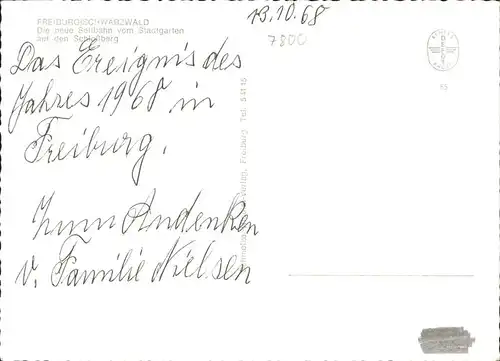 FREIBURG/SCHWARZWALD
Die neue Seilbahn vom Stadtgarten
auf den Schloßberg
13.10.68
7800
Das Ereignis des
Jahres 1968 in
Freiburg.
Zum Andenken
v. Familie Nielsen
Verlag, Freiburg Tel. 54115